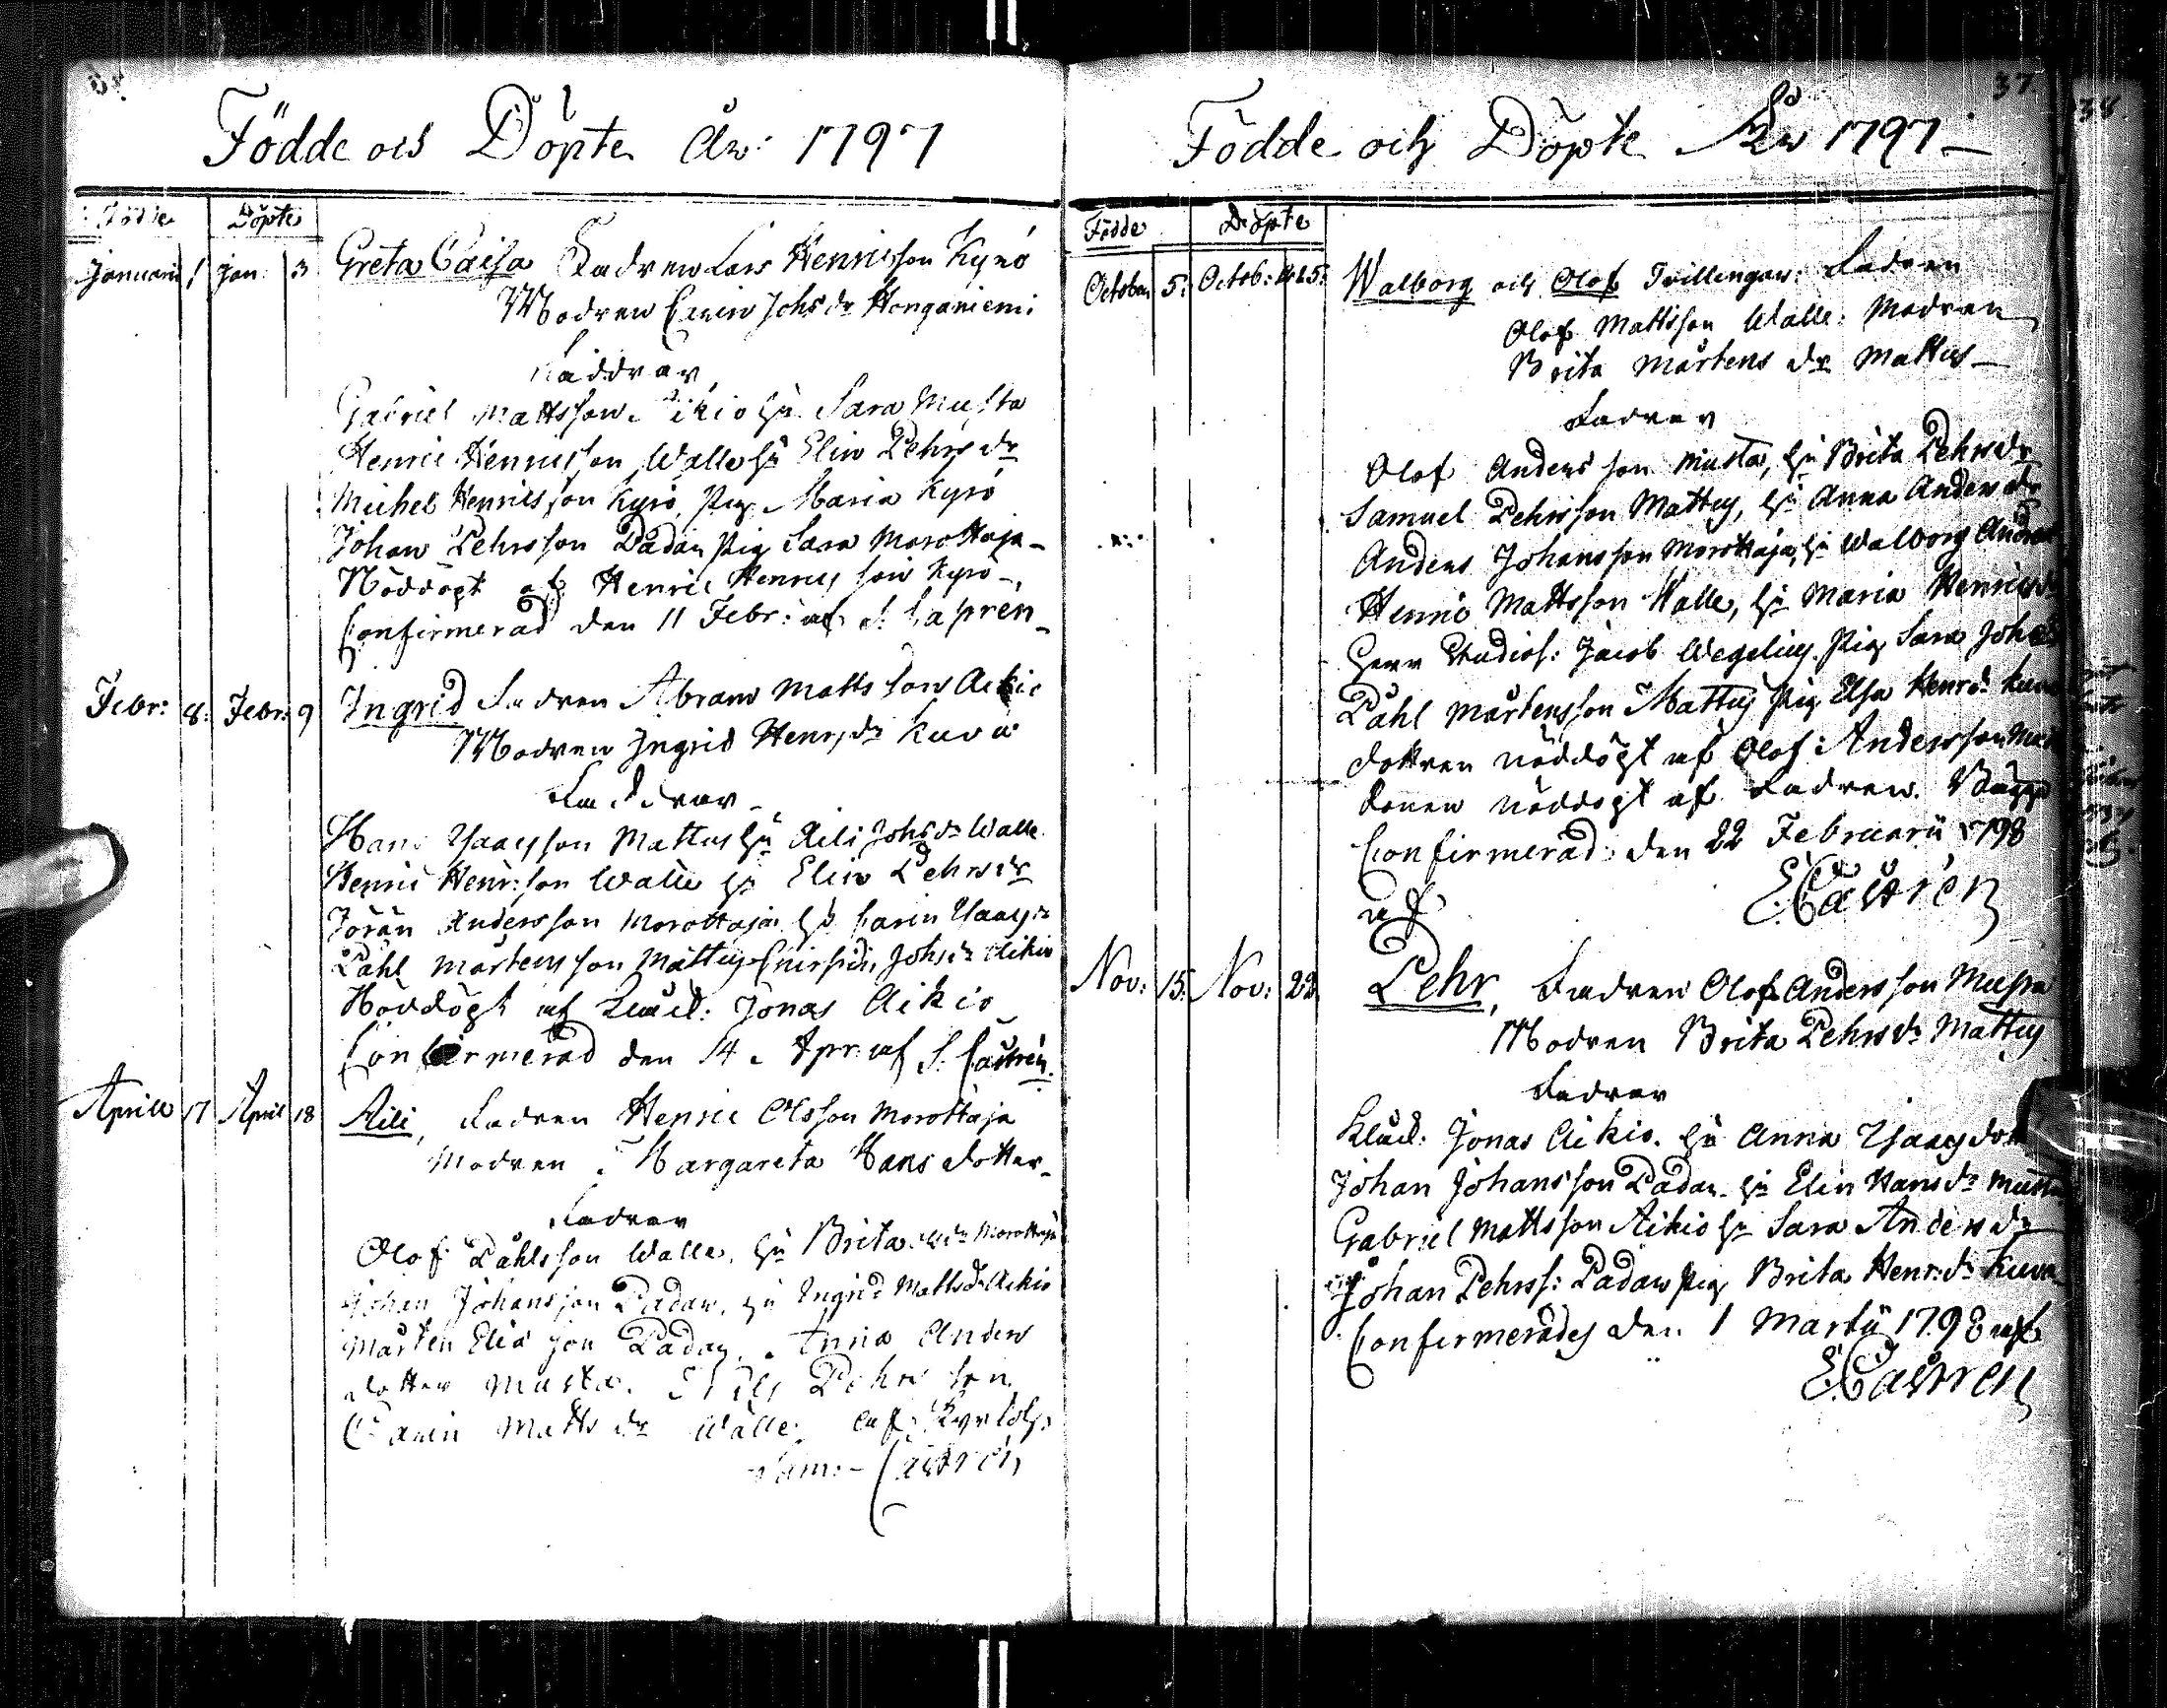 Födde och Döpte År: 1797
Födde
Döpte
Januarii 1 Jan: 3 Greta Caisa Fadren Lars Henricsson Kyrö
Modren Carin Johs dr Honganiemi
Faddrar
Gabriel Mattsson Aikio hu Sara Musta
Henric Henricsson Walle hu Elin Pehrs dr
Michel Henricsson Kyrö, Pig. Maria Kyrö
Johan Pehrsson Padar Pig Sara Morottaja
Nöddöpt af Henric Henricsson Kyrö
Confirmerad den 11 Febr: af
Febr: 8: Febr: 9 Ingrid Fadren Abram Mattsson Aikio
Modren Ingrid Henrs dr Kuva
Faddrar
Hans Isacsson Mattus hu Aili Johs dr Walle
Henric Henr:son Walle hu Elin Pehrs dr
Jöran Andersson Morottaja hu Carin Isacs dr
Påhl Mårtensson Mattus Johs dr Aikio
Nöddöpt af Jonas Aikio
Confirmerad den 14 Apr: af S. Castrén
Aprill 17 April 18 Aili, Fadren Henric Olsson Morottaja
Modren Margareta Hans dotter
Fadrar
Olof Påhlsson Walle, hu Brita Morottaja
Johan Johansson Padar, hu Ingrid Matts dr Aikio
Mårten Eliasson Padar, Anna Anders
dotter Musta. Nils Pehrsson
Carin Matts dr Walle. af
Sam: Castrén
37
Födde och Döpte År 1797
Födde
Döpte
October 5: Octob: 5: Walborg och Olof Tvillingar: Fadren
Olof Mattsson Walle: Modren
Brita Mårtens dr Mattus
Fadrar
Olof Andersson Musta, hu Brita Pehrs dr
Samuel Pehrsson Mattus, hu Anna Anders dr
Anders Johansson Morottaja, hu Walborg Anders
Henric Mattsson Walle, hu Maria Henrics dr
Herr Studios: Jacob Wegelius. Pig Sara Johs
Påhl Mårtensson Mattus Pig Elsa Henrs dr Kuva
dottren nöddöpt af Olof Andersson
sonen nöddöpt af Fadren. Bägge
Confirmerad: den 22 Februarii 1798
af E. Castrén
Nov: 15. Nov: 22. Pehr, Fadren Olof Andersson Musta
Modren Brita Pehrs dr Mattus
Fadrar
Jonas Aikio. hu Anna Isacs dotter
Johan Johansson Padar. hu Elin Hans dr Musta
Gabriel Mattsson Aikio hu Sara Anders dr
Johan Pehrss: Padar Pig Brita Henr: dr Kuva
Confirmerades den 1 Martii 1798 af
E. Castren
38